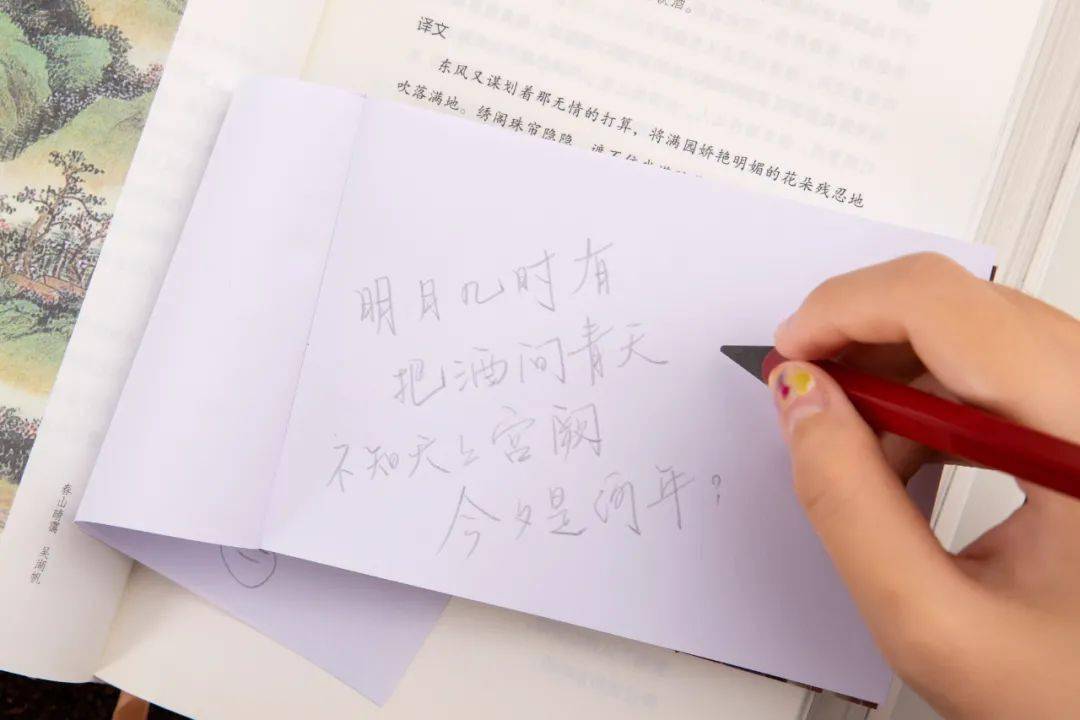 饮酒。
译文
东风又谋划着那无情的打算，将满园娇艳明媚的花朵残忍地
吹落满地。绣阁珠帘隐隐
明月几时有
把酒问青天
不知天上宫阙
今夕是何年？
春山晴霭 吴湖帆